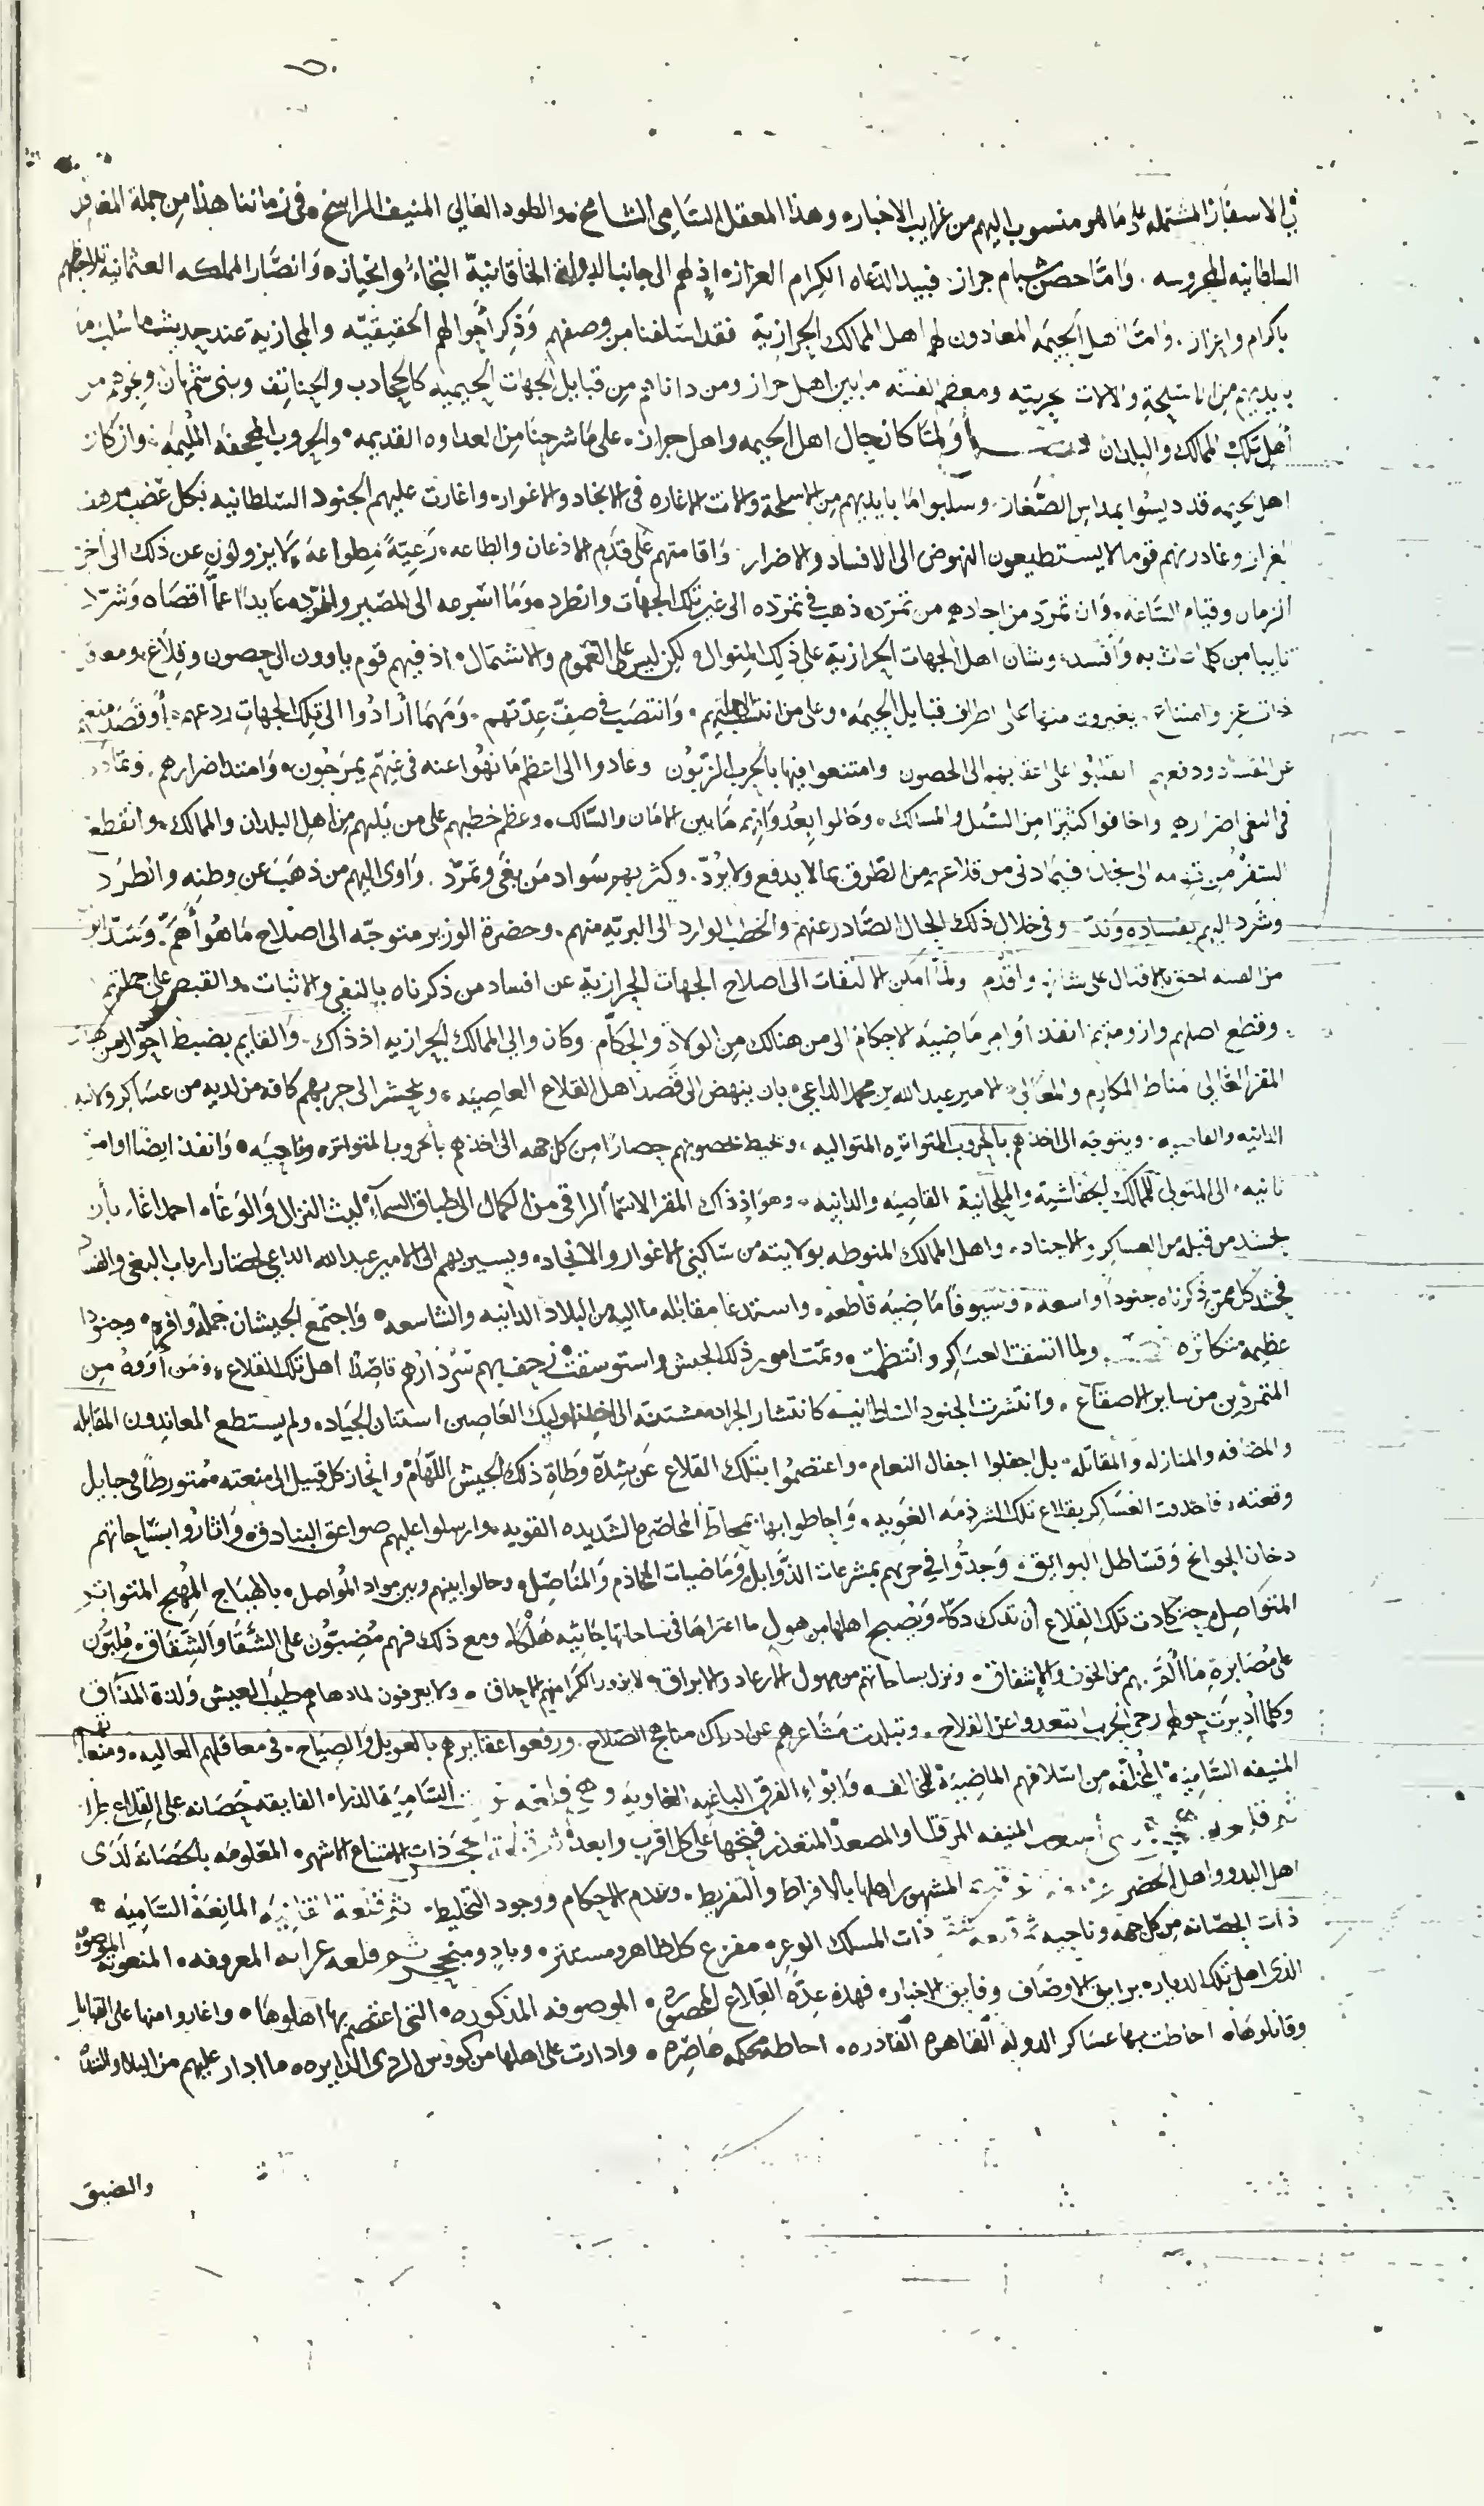 في الاسفار المشتمله على ما هو منسوب اليهم من غرايب الاخبار وهذا المعقل السامي الشامخ والطود العالي المنيف الراسخ في زماننا هذا من جملة المعاقل
السلطانيه المحروسه واما حصن شبام حراز فبيد الدعاه الكرام العزاز اذ لهم الى جانب الدولة الخاقانية التجاء وانحياز وانصار المملكه العثمانية تلاحظهم
باكرام واعزاز وامّا اهل الحيمه المعادون لهم اهل الممالك الحرازية فقد اسلفنا من وصفهم وذكر احوالهم الحقيقيه والمجازية عند حديث ما سلب ما
بايديهم من الاسلحة والالات الحربيه ومعظم الفتنه ما بين اهل حراز ومن داناهم من قبايل الجهات الحيميه كالحجادب والجناتف وبني شمهان ونحوهم من
اهل تلك الممالك والبلدان ولمّا كان حال اهل الحيمه واهل حراز على ما شرحنا من العداوه القديمه والحروب المجحفه المليمه وان كان
اهل الحيمه قد ديسوا بمداس الصّغار وسلبوا ما بايديهم من الاسلحة والات الاغاره في الانجاد والاغوار واغارت عليهم الجنود السلطانيه بكل غضب مرهف
الغرار وغادرتهم قوما لا يستطيعون النهوض الى الافساد والاضرار واقامتهم على قدم الاذعان والطاعه رعيّة مطواعه لا يزولون عن ذلك الى اخر
الزمان وقيام الساعه وان تمرّد من احادهم من تمرّد ذهب في تمرّده الى غير تلك الجهات وانطرد وما اسرعه الى المصير والمرد عايدًا عمّا اقصاه وشرّد
تايبا من كل ما به وافسد وشان اهل الجهات الحرازية على ذلك المنوال ولكن ليس على العموم والاشتمال اذ فيهم قوم ياوون الى حصون وقلاع ومعاقل
ذات عز وامتناع يغيرون منها على اطراف قبايل الحيمه وعلى من انتسب اليهم وانتصب في صفّ عدّتهم ومهما ارادوا الى تلك الجهات ردعهم او قصد منعهم
عن الفساد ودفعهم انقلبوا على اعقابهم الى الحصون وامتنعوا فيها بالحرب الزبون وعادوا الى اعظم ما نهوا عنه في غيّهم يمرحون وامتد اضرارهم وتمادى
في البغي اصرارهم واخافوا كثيرًا من السبل والمسالك وحالوا بعدوانهم ما بين الامان والسالك وعظم خطبهم على من يليهم من اهل البلدان والممالك وانقطع
السفر من تهامه الى نجد فيما دنى من قلاعهم من الطرق بما لا يدفع ولا يردّ وكثر بهم سواد من بغى وتمرّد واوى اليهم من ذهب عن وطنه وانطرد
وشرد اليهم بفساده وندّ وفي خلال ذلك الحال الصّادر عنهم والخطب الوارد الى البريّه منهم وحضرة الوزير متوجّه الى اصلاح ما هو اهمّ وسدّ
احق بالاقبال على شانه واقدم ولمّا امكن الالتفات الى اصلاح الجهات الحرازيّه عن افساد من ذكرناه بالنفي والاثبات والقبض على جملتهم
وقطع اصلهم وارومتهم انفذ اوامر ماضيه الاحكام الى من هنالك من الولاة والحكام وكان والي الممالك الحرازيه اذ ذاك والقايم بضبط احوال من هناك
المقر العالي مناط المكارم والمعالي الامير عبد الله بن محمد الداعي بان ينهض الى قصد اهل القلاع العاصيه ويحشر الى حربهم كافة من لديه من عساكر ولايته
الدانيه والقاصيه ويتوجه الى اخذهم بالحروب المتواتره المتواليه ويحيط بحصونهم حصارًا من كل جهه الى اخذهم بالحروب المتواتره وناحيه وانفذ ايضًا اوامر
ثانيه الى المتولي للممالك الحفاشية والملحانية القاصيه والدانيه وهو اذ ذاك المقر الاسمى الراقي من الكمال الى طباق السماء ليث النزال والوغاء احمد اغا بأن
يحشد من قبله من العساكر والاجناد واهل الممالك المنوطه بولايته من ساكني الاغوار والانجاد ويسير بهم الى الامير عبد الله الداعي لحصار ارباب البغي والفساد
فحشد كل ممن ذكرناه جنودًا واسعه وسيوفًا ماضيه قاطعه واستدعا مقابله ما اليه من البلاد الدانيه والشاسعه واجتمع الجيشان جملة وافره وجنودا
عظيمه متكاثره ولما اتسقت العساكر وانتظمت وتمت امور ذلك الجيش واستوسقت زحف بهم سردارهم قاصدًا اهل تلك القلاع ومن آووه من
المتمردين من ساير الاصقاع وانتشرت الجنود السلطانيه كانتشار الجراد مشتدّه الى اخذ اوليك العاصين استنان الجياد ولم يستطع المعاندون المقابله
والمصافه والمنازله والمقاتله بل اجفلوا اجفال النعام واعتصموا بتلك القلاع عن شدّة وطاة ذلك الجيش اللّهام وانحاز كل قبيل الى منعته متورطًا في حبايل
وقعته فاخذت العساكر بقلاع تلك الشرذمه الغويه واحاطوا بها بمحاط المحاصره الشديده القويه وارسلوا عليهم صواعق البنادق واثاروا بساحاتهم
دخان الجوانح وقساطل البوايق وجدّوا في حربهم بمشرعات الذوابل وماضيات المخاذم والمناصل وحالوا بينهم وبين مواد المواصل بالهياج المهيج المتواتر
المتواصل حتى كادت تلك القلاع ان تدك دكا ويصبح اهلها من هول ما اعتراها في ساحاتها جاثيه هلكا ومع ذلك فهم مضبّون على الشقا والشقاق ملبّون
على مصابرة ما ألمّ بهم من الخوف والاشفاق ونزل بساحاتهم من مهول الارعاد والابراق لا يزور الكرا منهم الاحداق ولا يعرفون لما دهاهم طيب العيش ولذة المذاق
وكلما اديرت حولهم رحى الحرب ابتعدوا عن الفلاح وتبلدت مشاعرهم عن ادراك مناهج الصلاح ورفعوا عقايرهم بالعويل والصياح في معاقلهم العاليه ومنعاتهم
المنيفه الساميه المخلّفه من اسلافهم الماضيه للمخالفه وايواء الفرق الباغيه الغاويه وهي قلعة الساميّة الذراء الفايقه حصانه على القلاع طرا
ثم قلعه المنيفه المرقا والمصعد المتعذر فتحها على كل اقرب وابعد ذات الامتناع الاشهر المعلومه بالحصانه لدى
اهل البدو واهل الحضر المشهور اهلها بالافراط والتفريط وعدم الاحكام ووجود التخليط ثم قلعة المانعة الساميه
ذات الحصانه من كل جهه وناحيه ذات المسلك الوعر مفزع كل ظاهر ومستتر وباد ومنحجر قلعه المعروفه المنعوته الموصوفه
لدى اهل تلك الديار برايق الاوصاف وفايق الاخبار فهذه عدّة القلاع المحصوره الموصوفه المذكوره التي اعتصم بها اهلوها واغاروا منها على القبايل
وقاتلوها احاطت بها عساكر الدوله القاهره القادره احاطه محكمه حاصره وادارت على اهلها من كووس الردى الدايره ما ادار عليهم من البلاء والشقا
والضيق